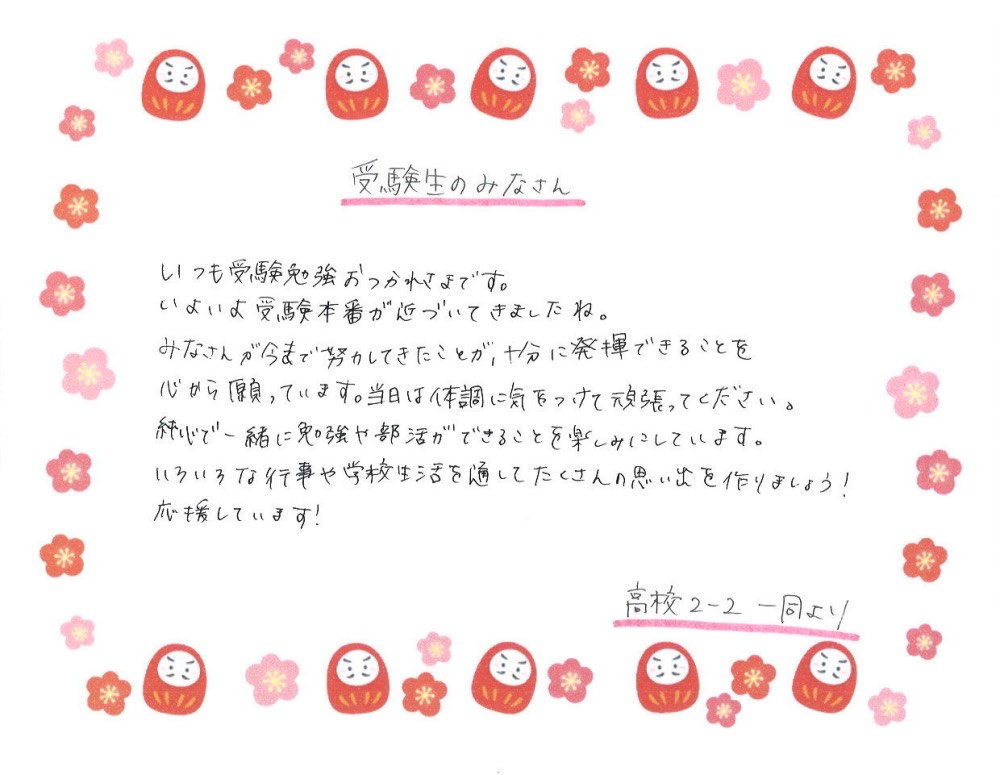 受験生のみなさん
いつも受験勉強おつかれさまです。
いよいよ受験本番が近づいてきましたね。
みなさんが今まで努力してきたことが、十分に発揮できることを
心から願っています。当日は体調に気をつけて頑張ってください。
純心で一緒に勉強や部活ができることを楽しみにしています。
いろいろな行事や学校生活を通してたくさんの思い出を作りましょう！
応援しています！
高校2-2 一同より